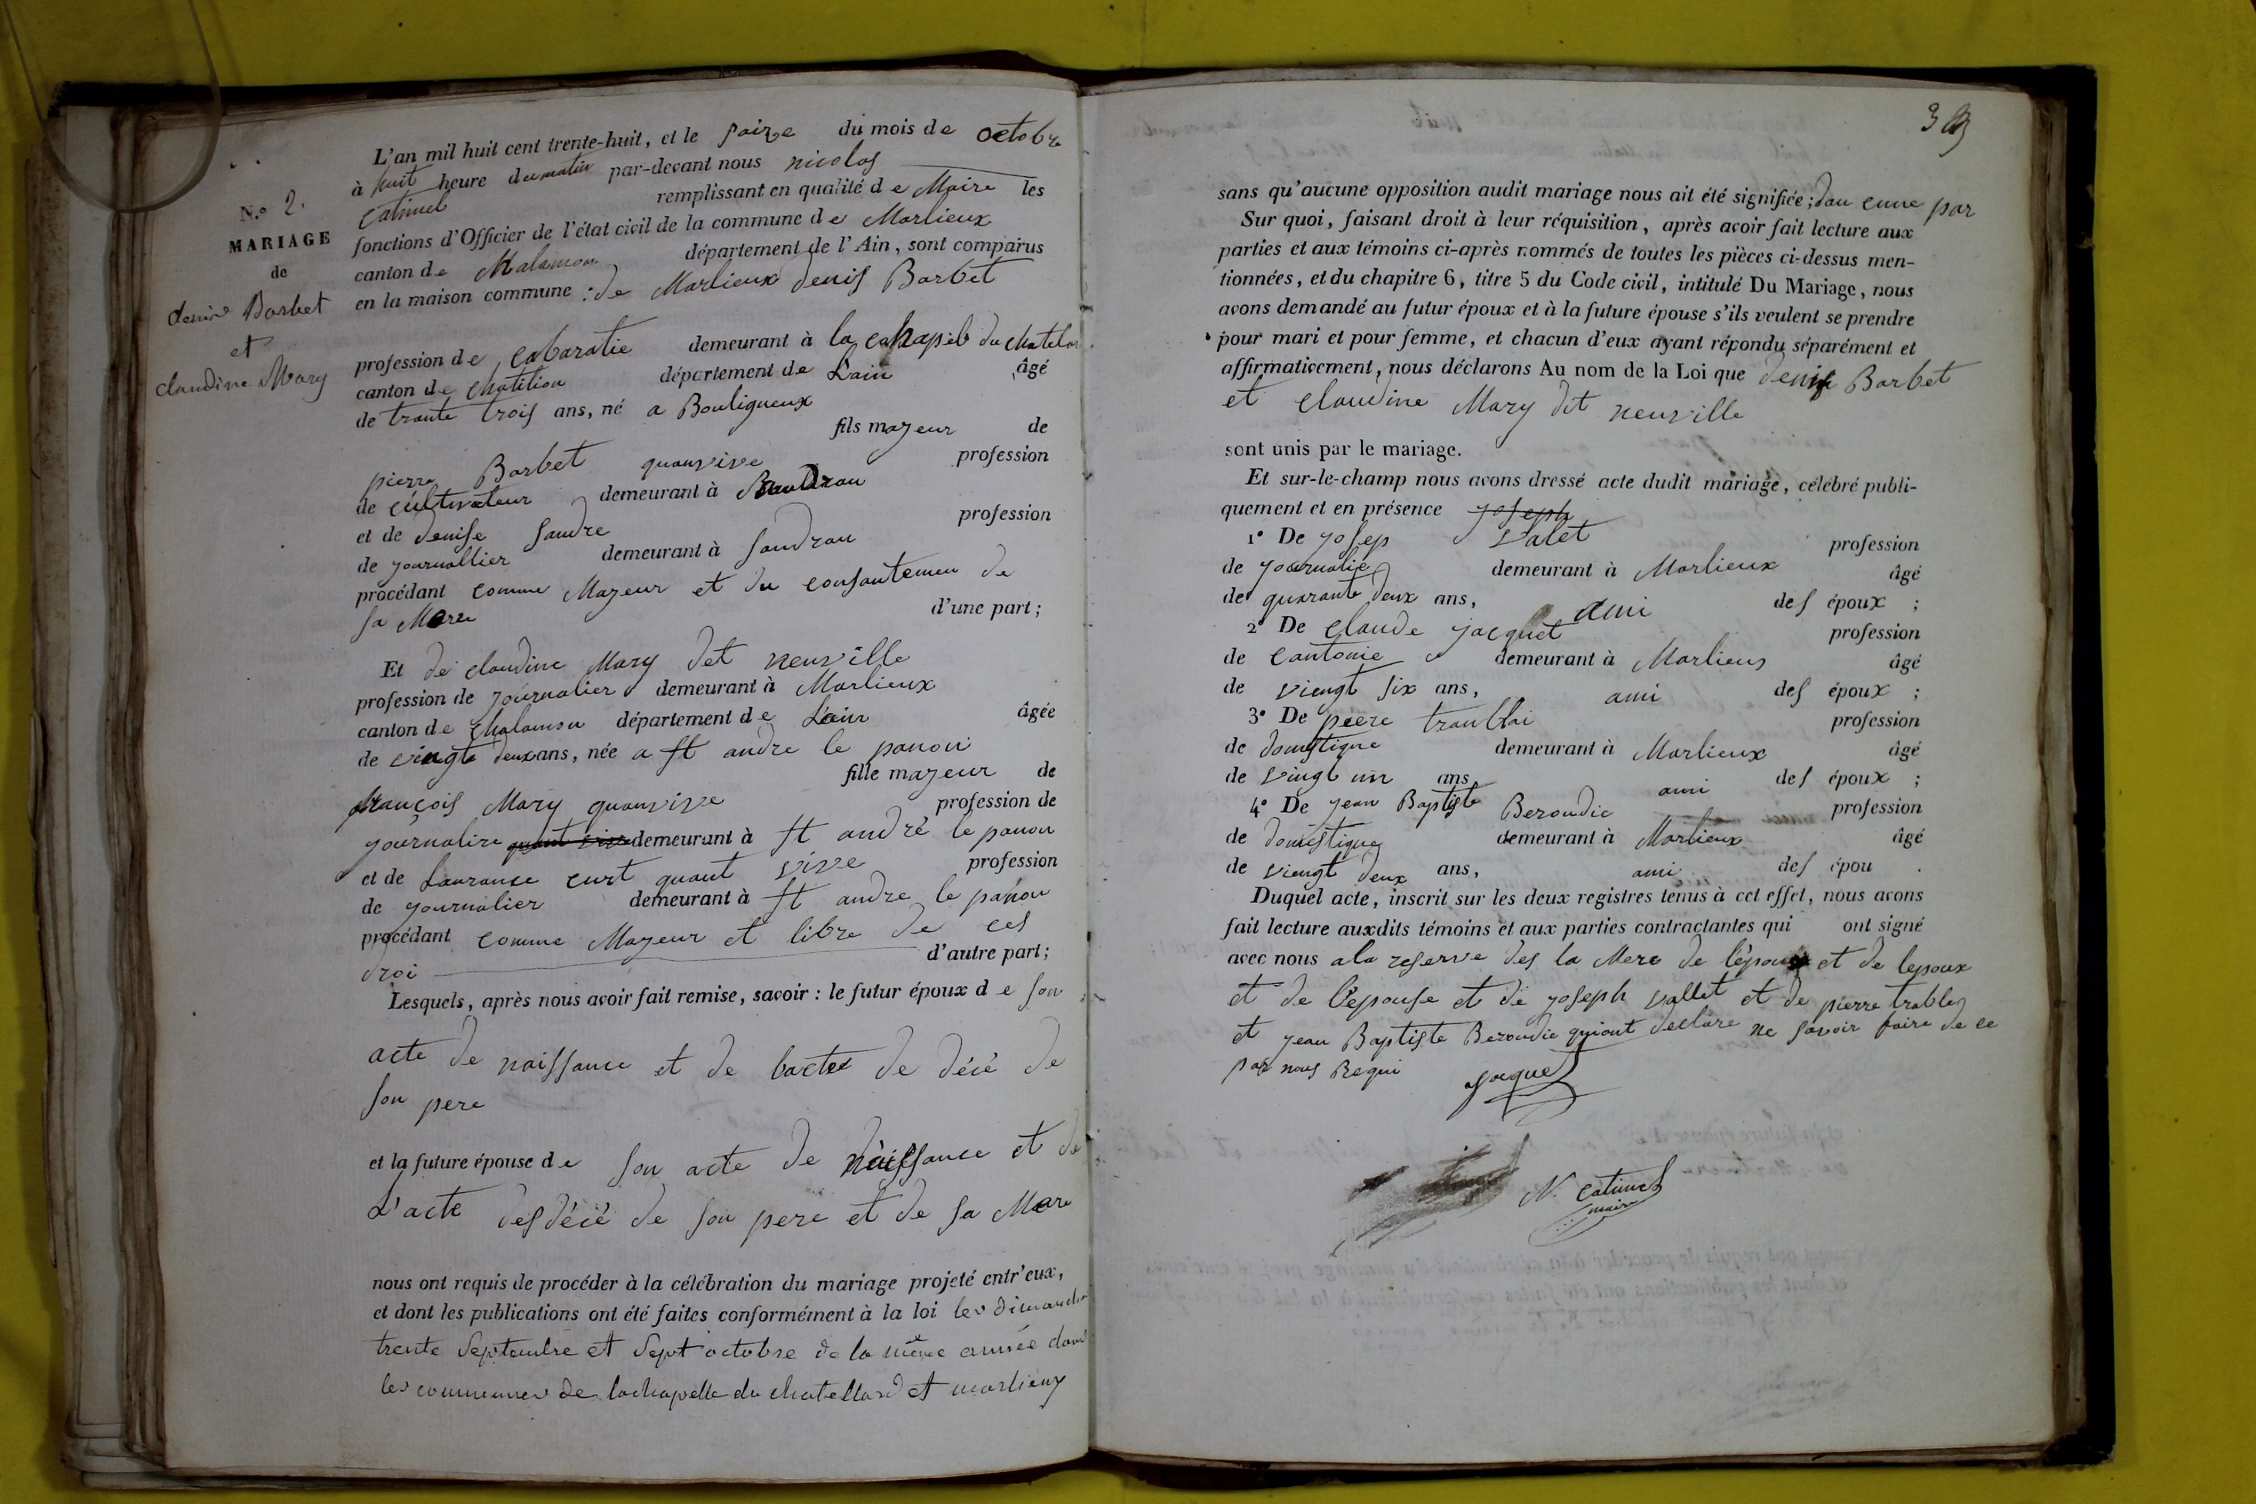 L'an mil huit cent trente-huit, et le saize du mois de octobre
à huit heure du matin par-devant nous nicolas
catimel remplissant en qualité de Maire les
N.º 2.
MARIAGE
de
denis Barbet
et
claudine Mary
fonctions d'Officier de l'état civil de la commune de Marlieux
canton de Chalamon département de l'Ain, sont comparus
en la maison commune : de Marlieux denis Barbet
profession de cabaratie demeurant à la chapele du chatelar
canton de chatilion département de L'ain âgé
de trante trois ans, né a Bouligneux
fils mazeur de
pierre Barbet quanvive profession
de cultivateur demeurant à
et de denise sandre profession
de journallier demeurant à sandran
procédant comme Mazeur et du consantemen de
sa Mere d'une part;
Et de claudine Mary det neuville
profession de journalier demeurant à Marlieux
canton de chalamon département de L'ain âgée
de viengt deux ans, née a st andre le panou
fille mazeur de
françois Mary quanvive profession de
journalire quant vive demeurant à st andré le panou
et de Laurance curt quant vive profession
de journalier demeurant à st andre le panou
procédant comme Mazeur et libre de ces
droi d'autre part;
Lesquels, après nous avoir fait remise, savoir : le futur époux de son
acte de naissance et de lacte de décé de
son pere
et la future épouse de son acte de naissance et de
L'acte des décé de son pere et de sa Mere
nous ont requis de procéder à la célébration du mariage projeté entr'eux,
et dont les publications ont été faites conformément à la loi les dimanches
trente Septembre et Sept octobre de la même année dans
les communes de lachapelle du chatellard et marlieux
3
sans qu'aucune opposition audit mariage nous ait été signifiée; dau cune par
Sur quoi, faisant droit à leur réquisition, après avoir fait lecture aux
parties et aux témoins ci-après nommés de toutes les pièces ci-dessus men-
tionnées, et du chapitre 6, titre 5 du Code civil, intitulé Du Mariage, nous
avons demandé au futur époux et à la future épouse s'ils veulent se prendre
pour mari et pour femme, et chacun d'eux ayant répondu séparément et
affirmativement, nous déclarons Au nom de la Loi que denis Barbet
et claudine Mary dit neuville
sont unis par le mariage.
Et sur-le-champ nous avons dressé acte dudit mariage, célébré publi-
quement et en présence joseph
1º De josep valet profession
de journalie demeurant à Marlieux âgé
de quarante deux ans, ami des époux ;
2º De claude jacquet profession
de cantonie demeurant à Marlieus âgé
de viengt six ans, ami des époux ;
3º De pierre tranblai profession
de domestique demeurant à Marlieux âgé
de vingt un ans ami des époux ;
4º De jean Baptiste Beroudie profession
de domestique demeurant à Marlieux âgé
de viengt deux ans, ami des épou .
Duquel acte, inscrit sur les deux registres tenus à cet effet, nous avons
fait lecture auxdits témoins et aux parties contractantes qui ont signé
avec nous a la reserve des la Mere de l'époux et de lepoux
et de l'epouse et de joseph vallet et de pierre trabley
et jean Baptiste Beroudie quiont declare ne savoir faire de ce
par nous Requi
jaquet
N. catimel
maire